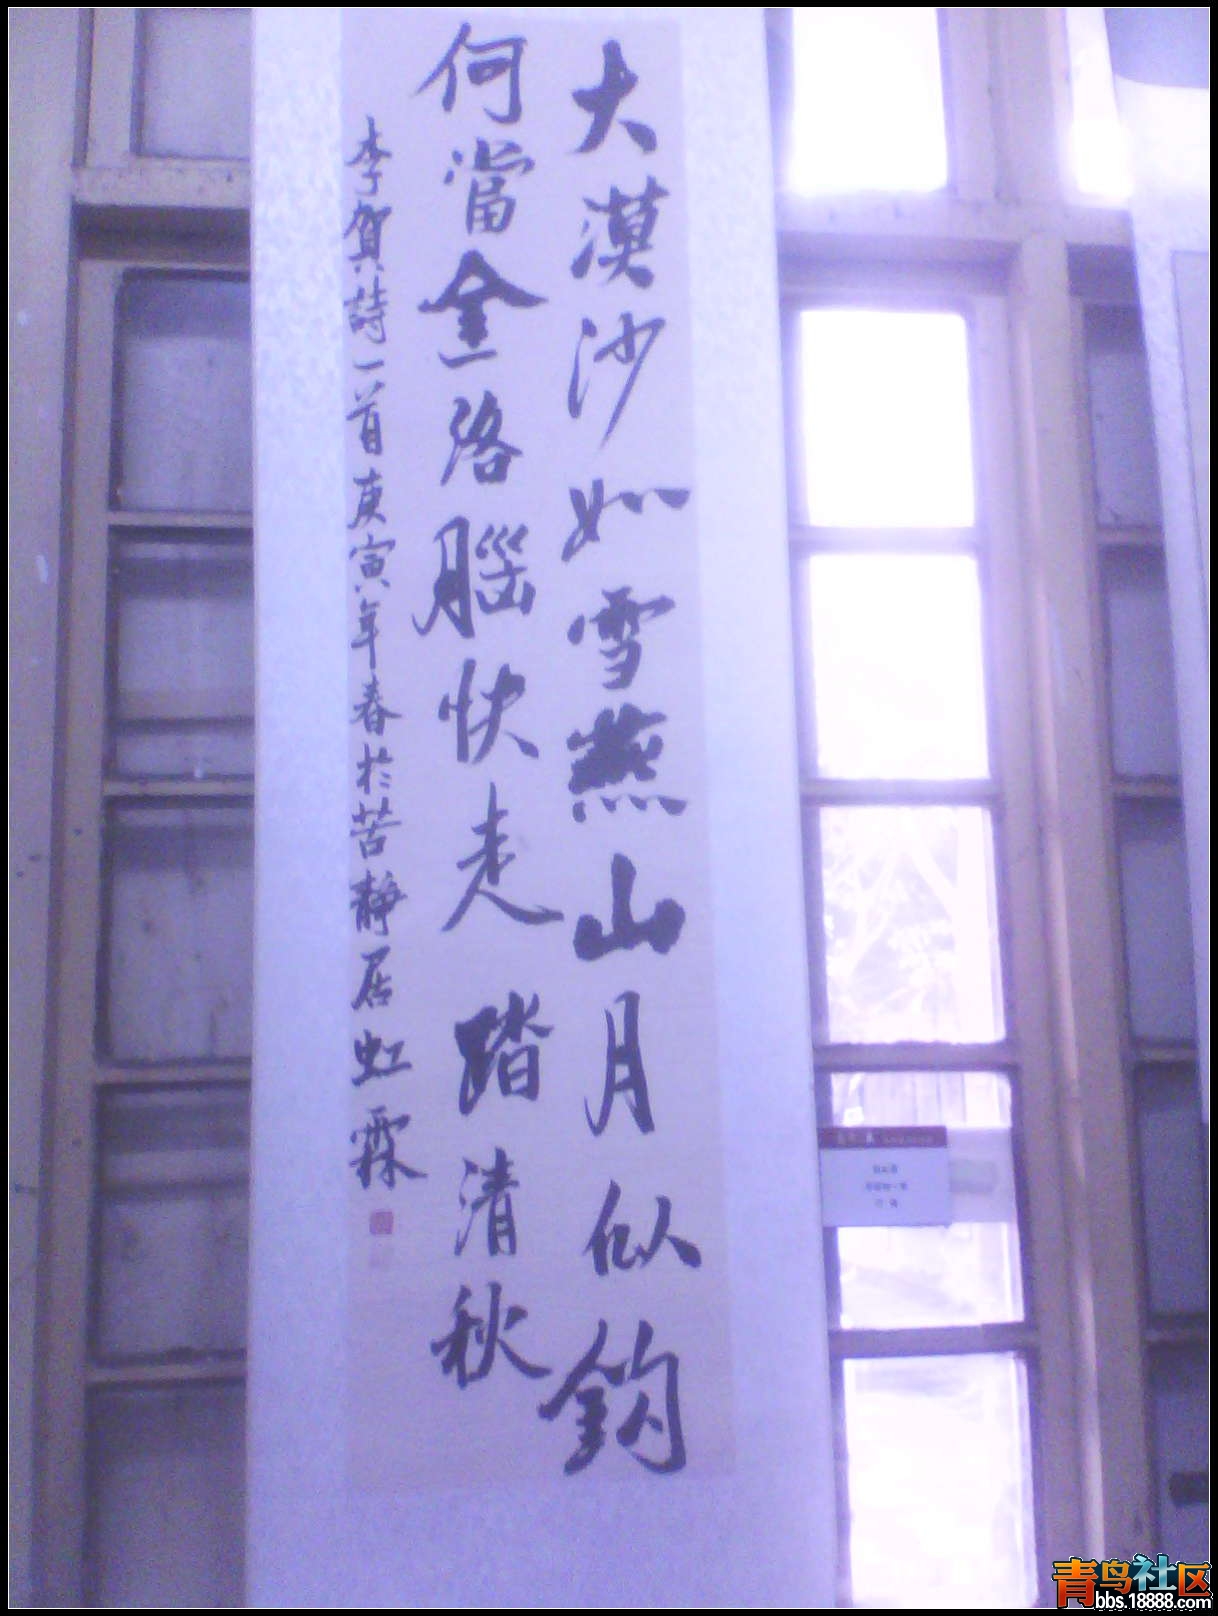 大漠沙如雪燕山月似鈎
何當金洛腦快走踏清秋
李賀詩一首庚寅年春於苦靜居虹霖
青鸟社区
bbs.18888.com